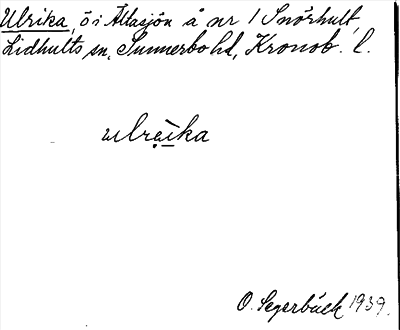 Ulrika, ö i Ällasjön å nr 1 Snörhult,
Lidhults sn, Sunnerbo hd, Kronob. l.
ulrèika
O. Segerbäck 1939.